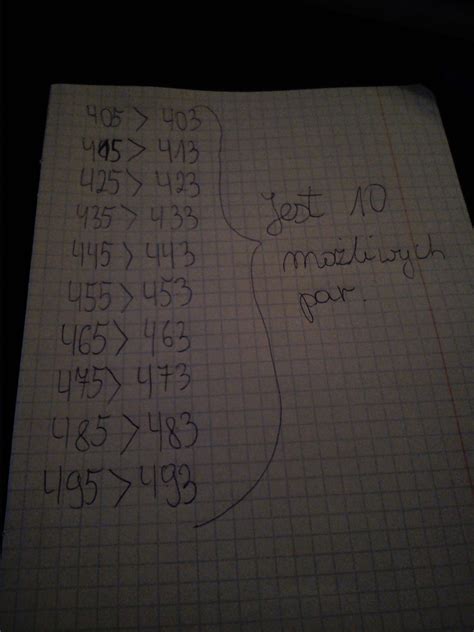 405 > 403
415 > 413
425 > 423
435 > 433
445 > 443
455 > 453
465 > 463
475 > 473
485 > 483
495 > 493
Jest 10
możliwych
par.